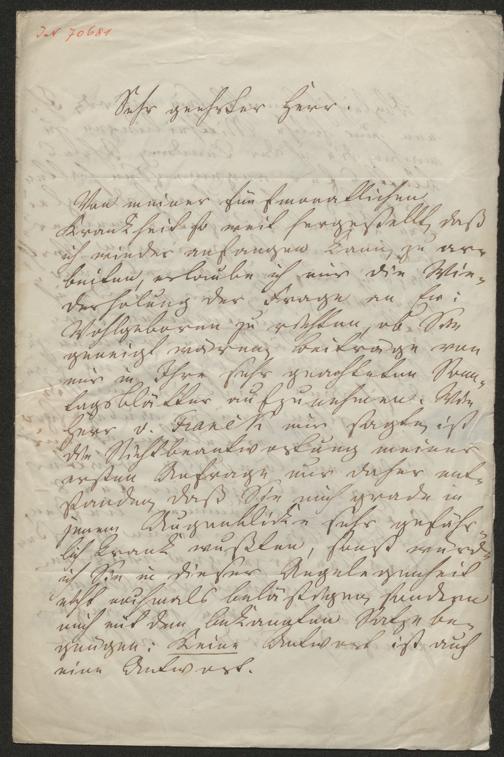 IN 70681
Sehr geehrter Herr.
Von meiner fünfmonatlichen
Krankheit so weit hergestellt, daß
ich wieder anfangen kann, zu ar-
beiten, erlaube ich mir die Wie-
derholung der Frage an Ew:
Wohlgeboren zu richten, ob Sie
geneigt wären, Beiträge von
mir in Ihre sehr geachteten Sonn-
tagsblätter aufzunehmen. Wie
Herr v. Franck mir sagte, ist
die Nichtbeantwortung meiner
ersten Anfrage nur daher ent-
standen, daß Sie mich grade in
jenem Augenblicke sehr gefähr-
lich krank wußten, sonst würde
ich Sie in dieser Angelegenheit
nicht nochmals belästigen, sondern
mich mit dem bekannten Satze be-
gnügen: Keine Antwort ist auch
eine Antwort.